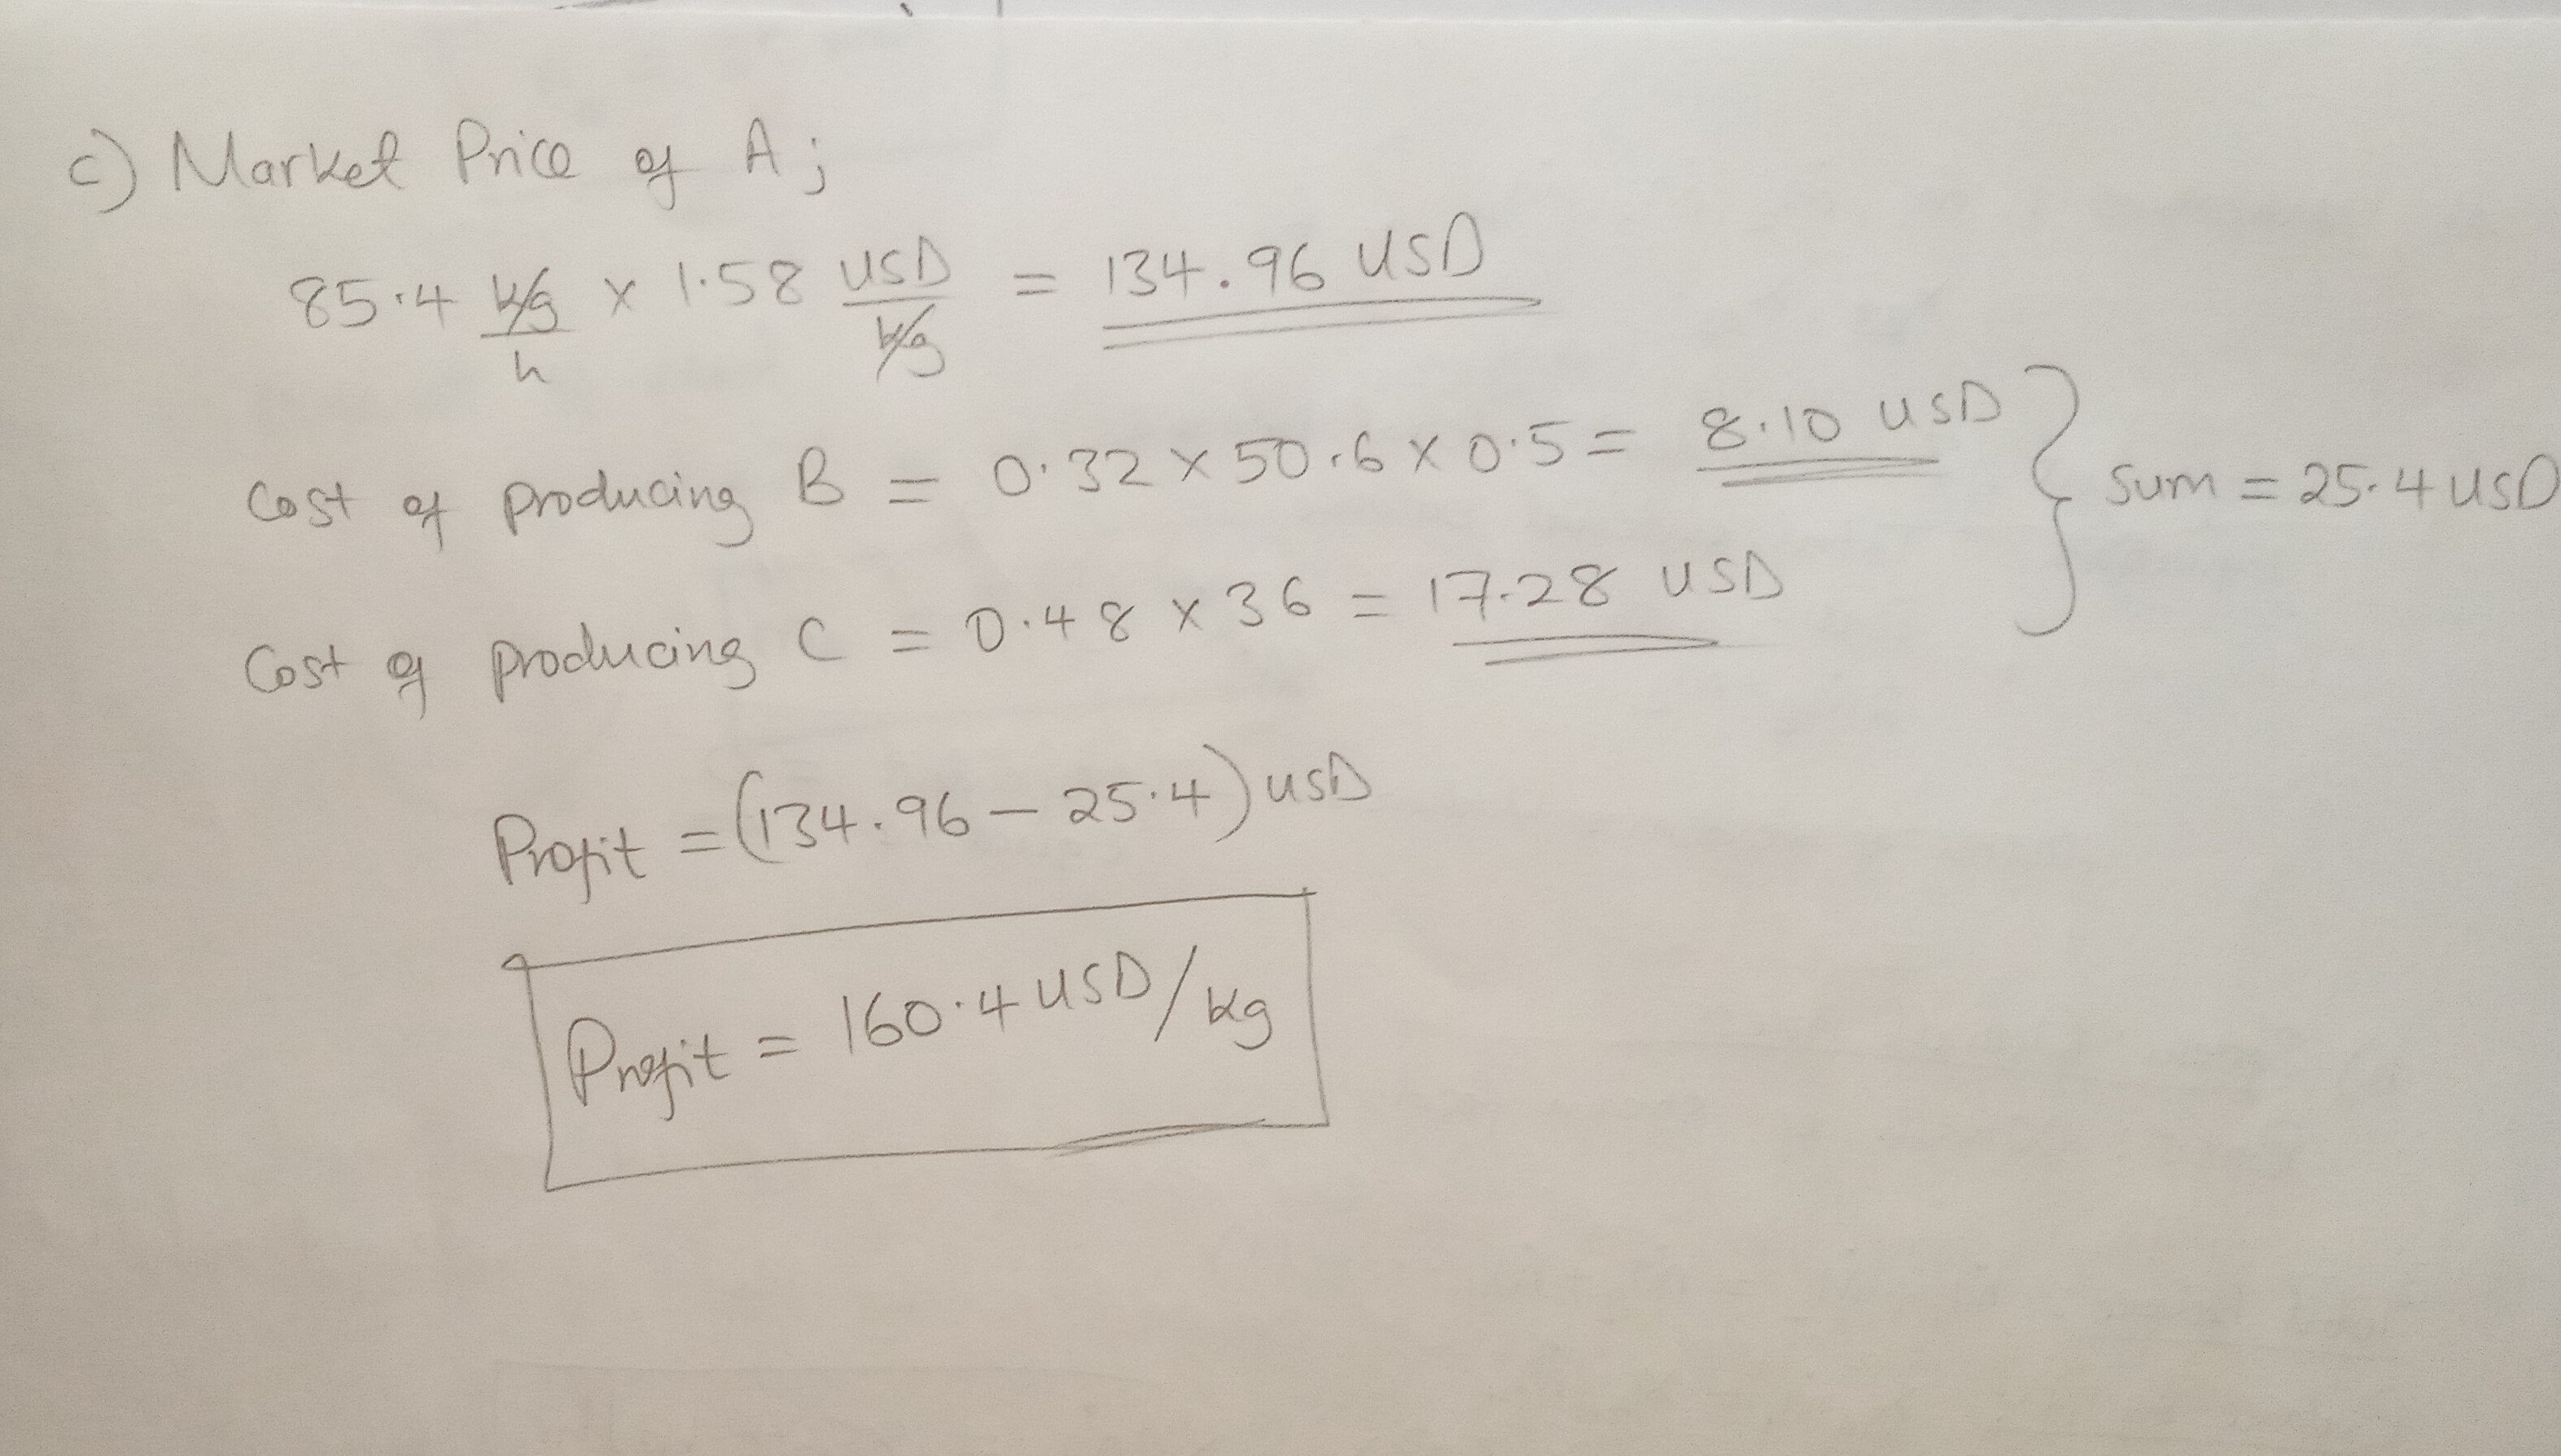 c) Market Price of A ;
85.4 kg/h x 1.58 USD/kg = 134.96 USD
Cost of producing B = 0.32 x 50.6 x 0.5 = 8.10 USD
Sum = 25.4 USD
Cost of producing C = 0.48 x 36 = 17.28 USD
Profit = (134.96 – 25.4) USD
Profit = 160.4 USD/kg